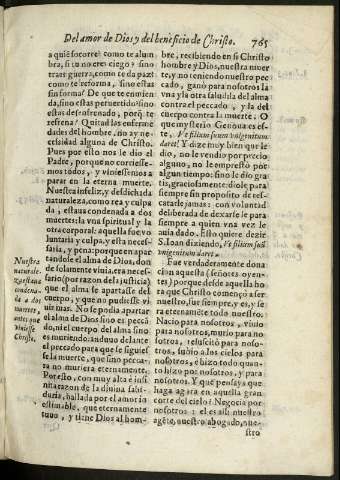 Del amor de Dios y del beneficio de Christo. 765
a quiē socorre: como te alum
bra, si tu no eres ciego? sino
traes guerra, como te da paz?
como te reforma, sino estas
sin forma? De que te enmien
da, sino estas peruertido? sino
estas desenfrenado, porq̄ te
refrena? Quitad las enferme
dades del hombre, no ay ne-
cessidad alguna de Christo.
Pues por esto nos le dio el
Padre, porque no corriesse-
mos todos, y viniessemos a
parar en la eterna muerte.
Nuestra infeliz, y desdichada
naturaleza, como rea y culpa
da, estaua condenada a dos
muertes: la vna spiritual y la
otra corporal: aquella fue vo
luntaria y culpa, y esta neces-
saria, y pena: porque en apar
tandole el alma de Dios, don
de solamente viuia, era neces-
sario (por razon de la justicia)
que el alma se apartasse del
cuerpo, y que no pudiesse vi
uir mas. No se podia apartar
el alma de Dios sino es pecan
do, ni el cuerpo del alma sino
es muriendo: anduuo delante
el peccado para que se siguies
se la muerte, que sino pecca-
ra no muriera eternamente.
Por esto, con muy alta è infi
nita razon de la diuina sabi-
duria, hallada por el amor in
estimable, que eternamente
tuuo, y tiene Dios al hom-
Nuestra
naturale-
za estaua
condena-
da a dos
muertes,
antes que
viniesse
Christo.
bre, recibiendo en si Christo
hombre y Dios, nuestra muer
te, y no teniendo nuestro pec
cado, ganò para nosotros la
vna y la otra saludable del alma
contra el peccado, y la del
cuerpo contra la muerte. O
que mysterio Genoua es es-
te. Ve filium suum vnigenitum
daret! Y dize muy bien que le
dio, no le vendio por precio
alguno, no le emprestò por
algun tiempo: sino le dio gra
tis, graciosamente: diole para
siempre sin proposito de res-
catarle jamas: con voluntad
deliberada de dexarle le para
siempre a quien vna vez le
auia dado. Esto quiere dezir
S. Ioan diziendo, Ve filium suū
vnigenitum daret.
Fue verdaderamente dona
cion aquella (señores oyen-
tes) porque desde aquella ho
ra que Christo començò a ser
nuestro, fue siempre, y es, y se
ra eternamēte todo nuestro.
Nacio para nosotros, viuio
a nosotros, murio para no so
tros, resuscitò para nosotros,
tros, subio a los cielos para
nosotros, è hizo todo quan-
to hizo por nosotros, y para
nosotros. Y que pensays que
haga aora en aquella gran
corte del cielo? Negocia por
nosotros: el es alla nuestro
agēte, nuestro abogado, nue-
stro